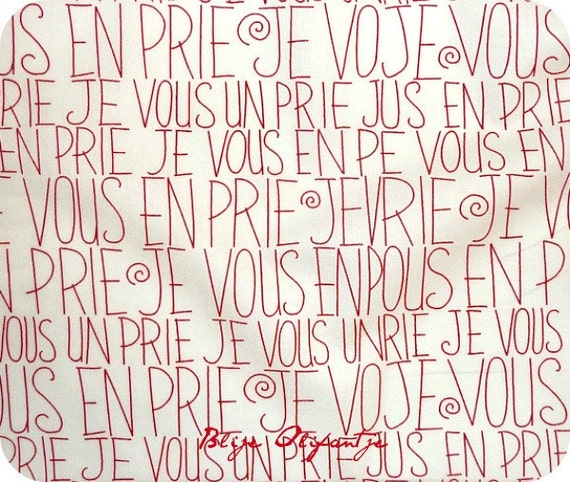 JE VOUS UN PRIE JE VOUS
OUS EN PRIE JE VOJE VOUS
PRIE JE VOUS UN PRIE JUS EN PRIE
EN PRIE JE VOUS EN PE VOUS EN
E VOUS EN PRIE JEVRIE JE VO
N PRIE JE VOUS ENPOUS EN P
VOUS UN PRIE JE VOUS UNRIE JE VOUS
OUS EN PRIE JE VOJE VOUS
PRIE JE VOUS UN PRIE JUS EN PRIE
Blije Olifantje